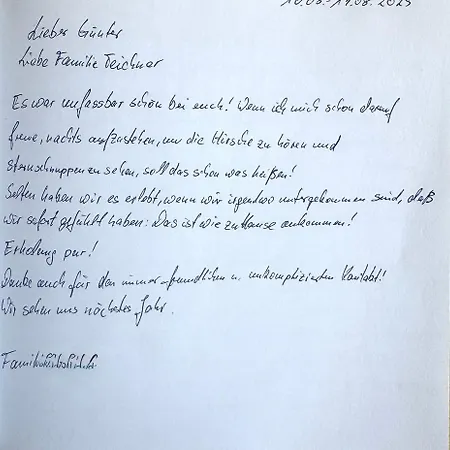 10.08.-19.08.2025
Lieber Günter
Liebe Familie Teichner
Es war unfassbar schön bei euch! Wenn ich mich schon darauf
freue, nachts aufzustehen, um die Hirsche zu hören und
Sternschnuppen zu sehen, soll das schon was heißen!
Selten haben wir es erlebt, wenn wir irgendwo untergekommen sind, daß
wir sofort gefühlt haben: Das ist wie zuHause ankommen!
Erholung pur!
Danke auch für den immer freundlichen u. unkomplizierten Kontakt!
Wir sehen uns nächstes Jahr.